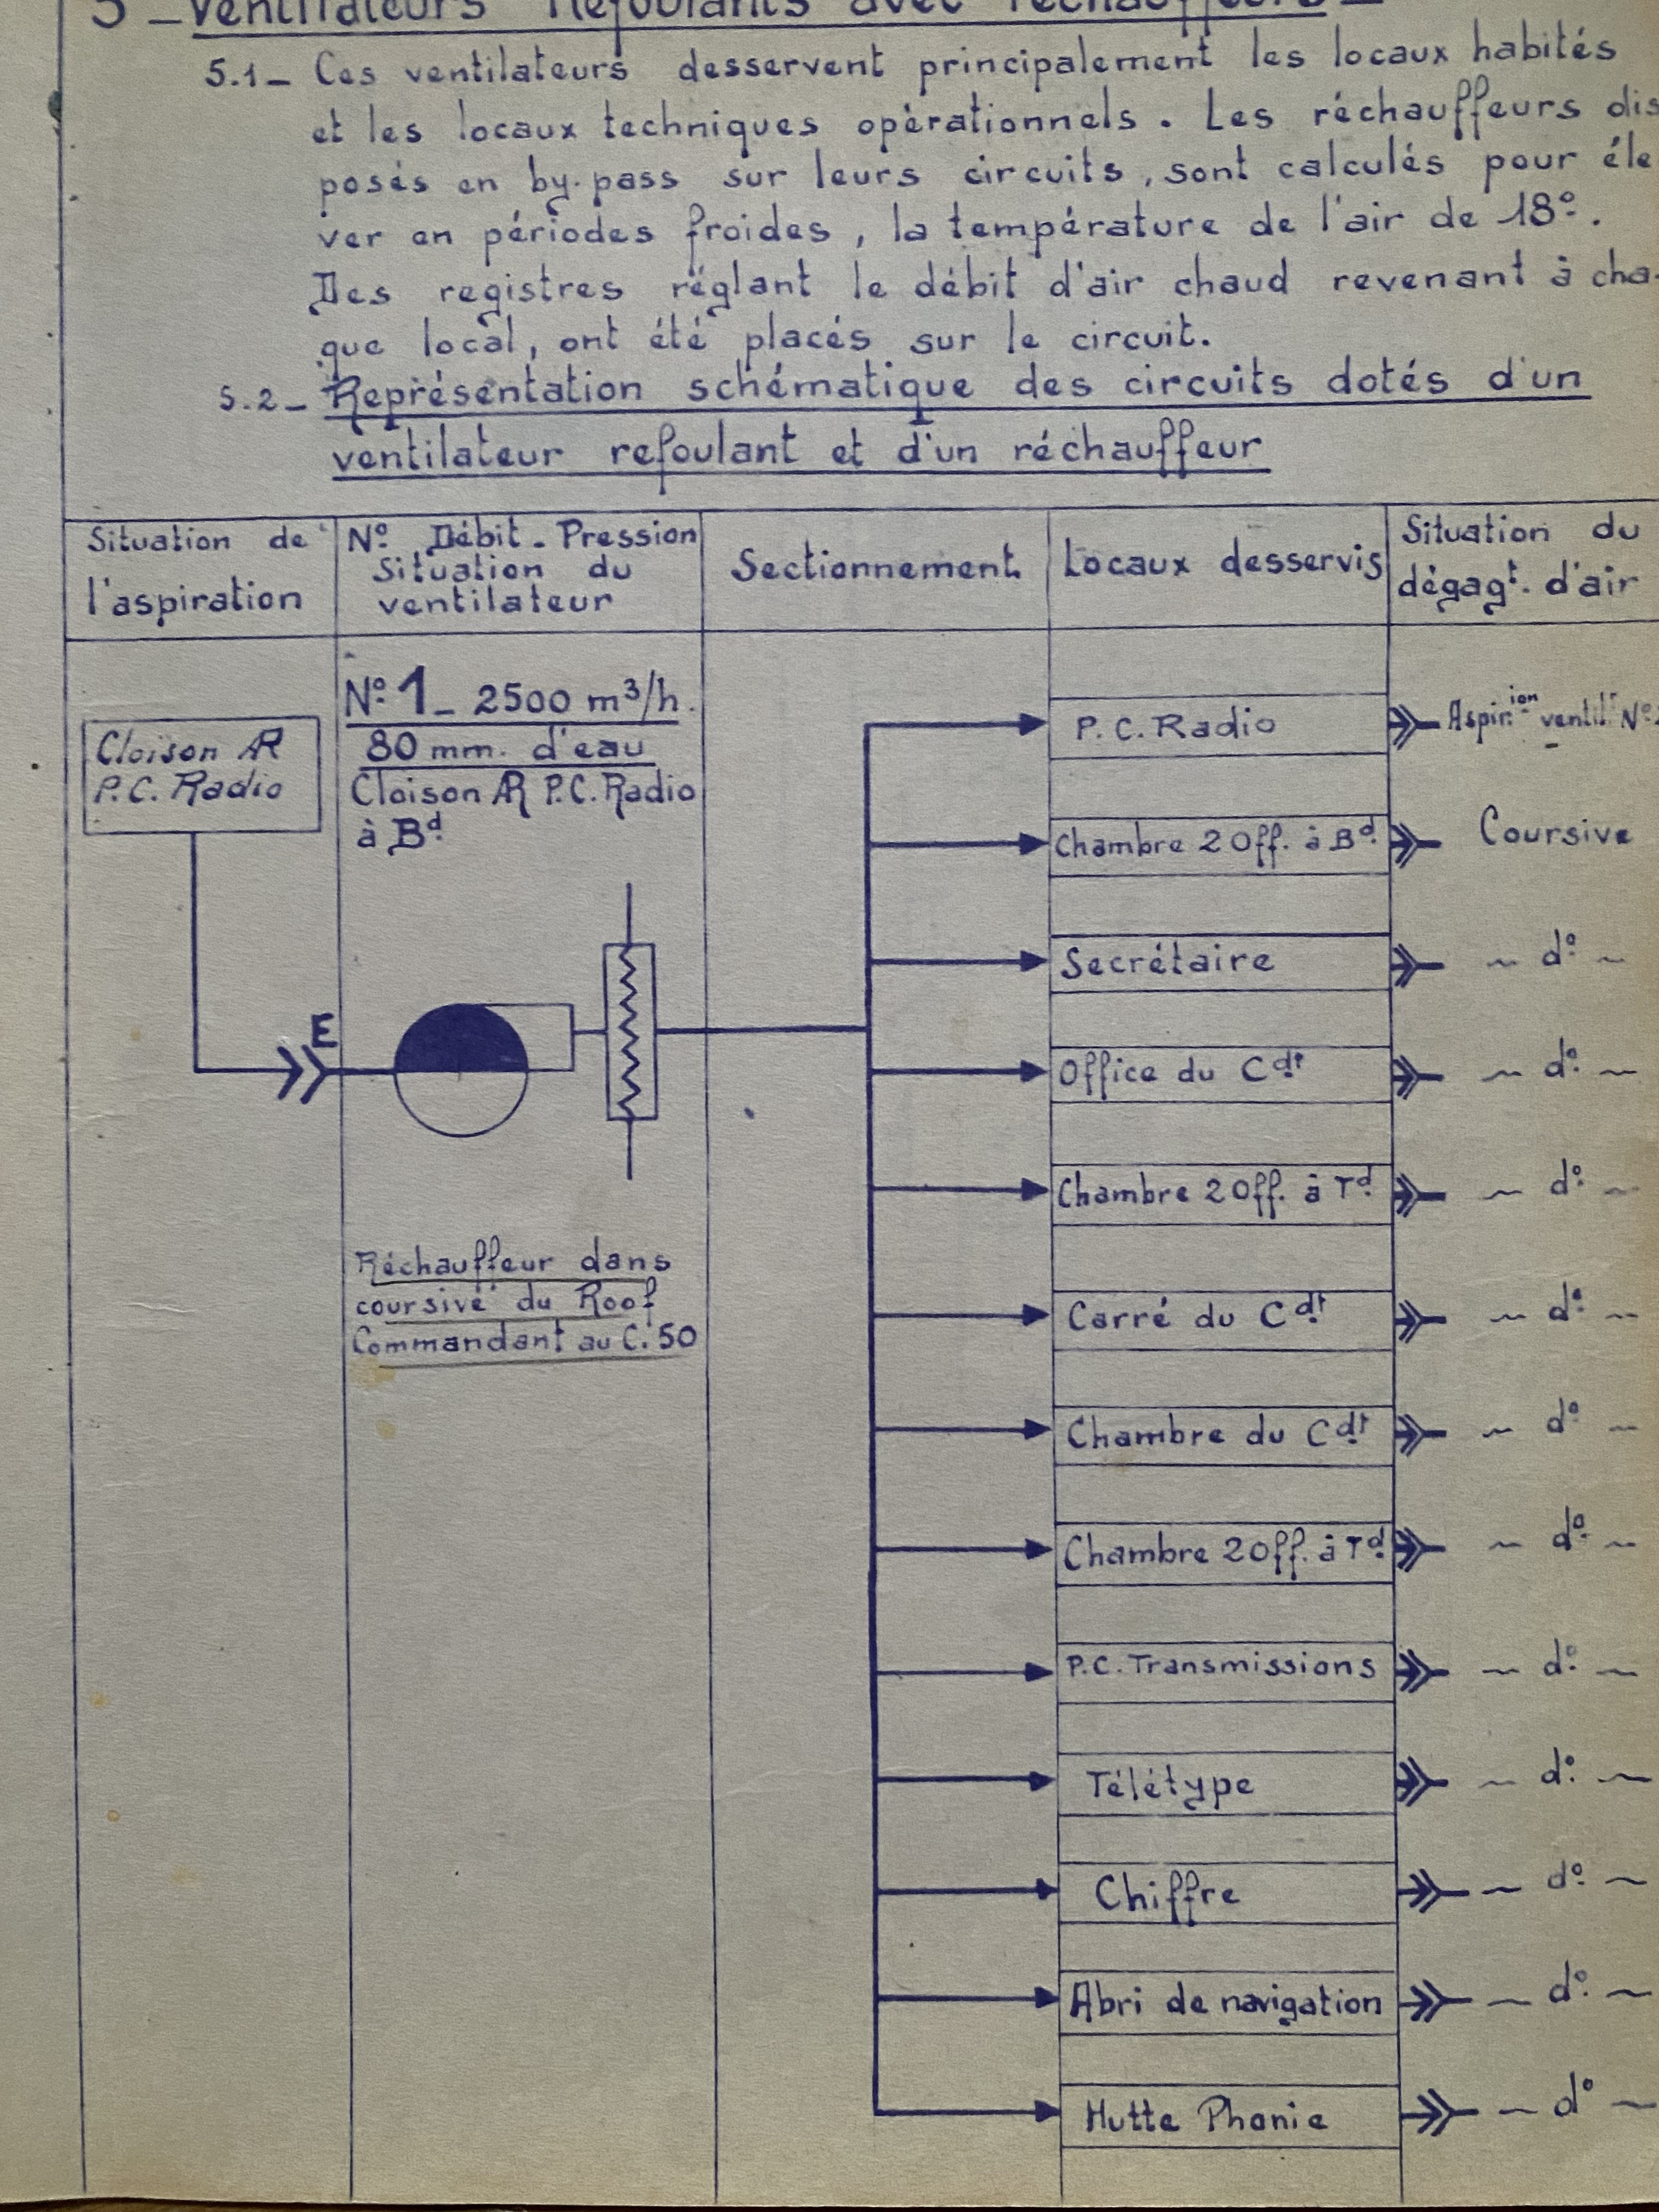 5 _ Ventilateurs Refoulants avec réchauffeurs _
5.1_ Ces ventilateurs desservent principalement les locaux habités
et les locaux techniques opérationnels. Les réchauffeurs dis
posés en by.pass sur leurs circuits, sont calculés pour éle
ver en périodes froides, la température de l'air de 18°.
Des registres réglant le débit d'air chaud revenant à cha-
que local, ont été placés sur le circuit.
5.2_ Représentation schématique des circuits dotés d'un
ventilateur refoulant et d'un réchauffeur
Situation de
l'aspiration
N° Débit - Pression
Situation du
ventilateur
Sectionnement
Locaux desservis
Situation du
dégagt. d'air
Cloison AR
P.C. Radio
N° 1_ 2500 m³/h.
80 mm. d'eau
Cloison AR P.C. Radio
à Bd
E
Réchauffeur dans
coursive du Roof
Commandant au C.50
P.C. Radio
Aspir.ion ventil.r N°
Chambre 2 Off. à Bd
Coursive
Secrétaire
~ d° ~
Office du Cdt
~ d° ~
Chambre 2 Off. à Td
~ d° ~
Carré du Cdt
~ d° ~
Chambre du Cdt
~ d° ~
Chambre 2 Off. à Td
~ d° ~
P.C. Transmissions
~ d° ~
Télétype
~ d° ~
Chiffre
~ d° ~
Abri de navigation
~ d° ~
Hutte Phonie
~ d° ~